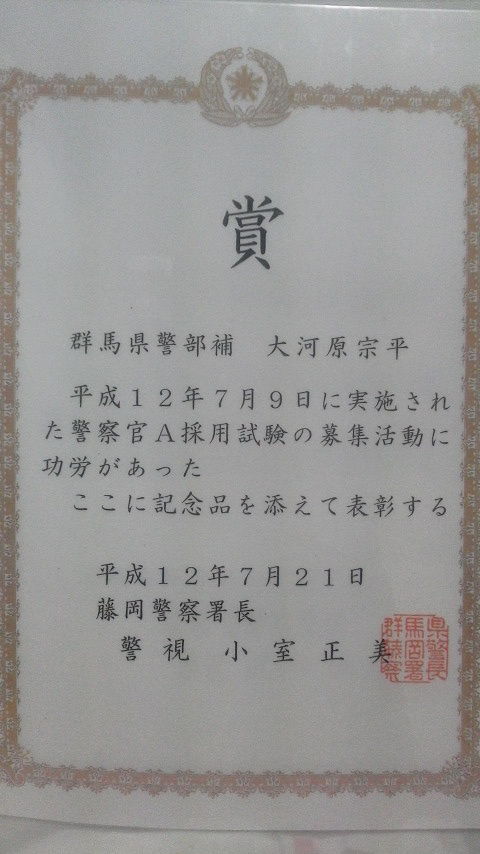 賞
群馬県警部補　大河原宗平
平成１２年７月９日に実施され
た警察官Ａ採用試験の募集活動に
功労があった
ここに記念品を添えて表彰する
平成１２年７月２１日
藤岡警察署長
警視　小室正美
群馬県藤岡警察署長